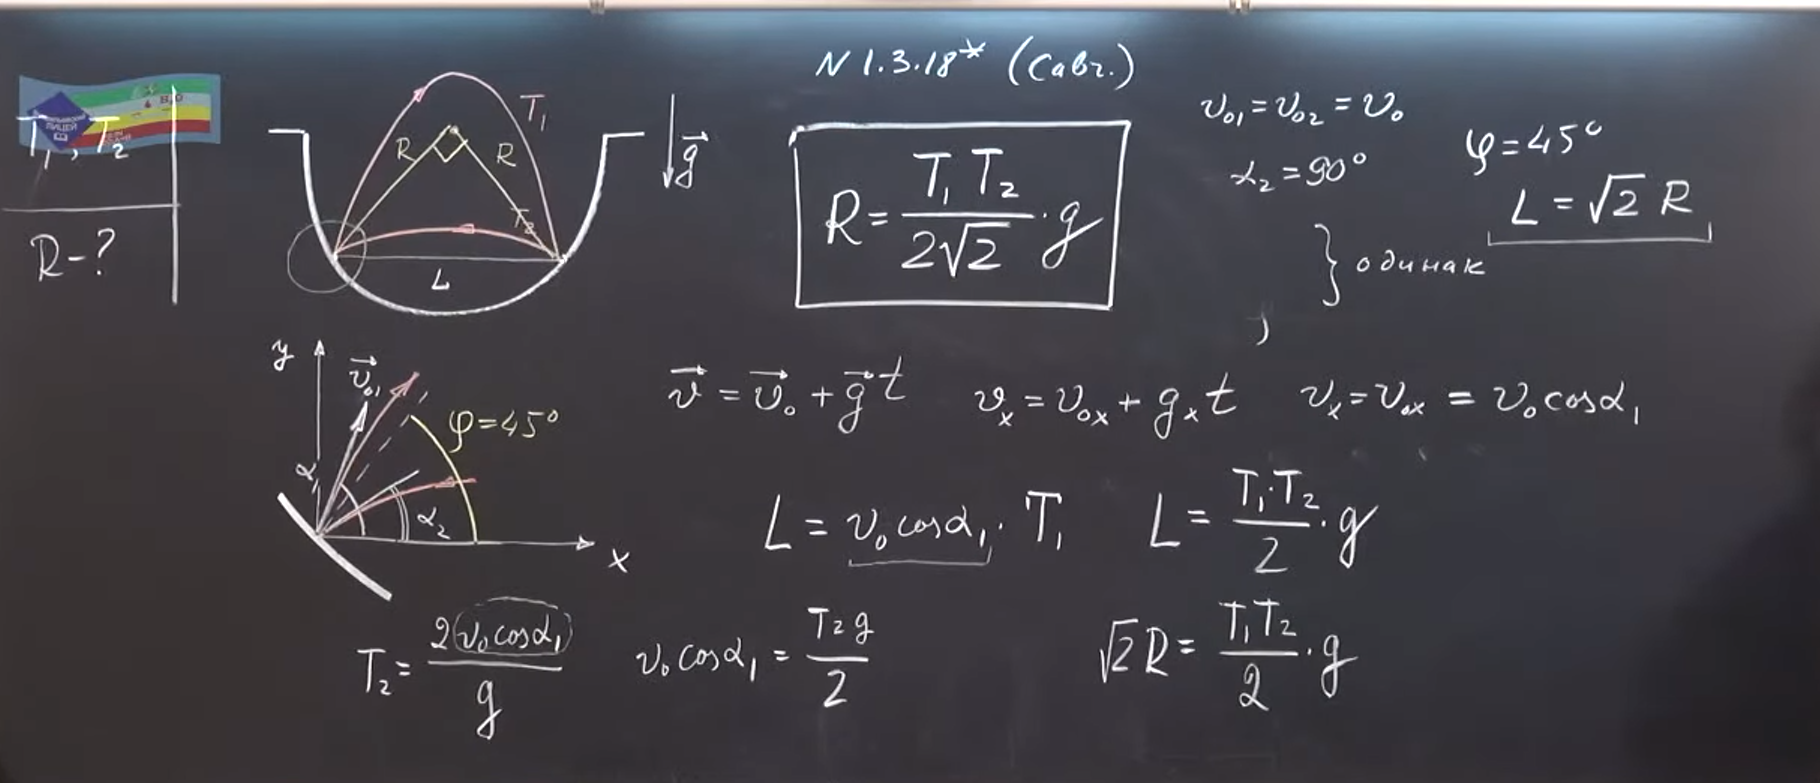 N 1.3.18* (Савч.)
T₁, T₂
R-?
R
R
T₁
T₂
L
g⃗
R = T₁T₂/2√2 · g
v₀₁ = v₀₂ = v₀
α₂ = 90°
φ = 45°
L = √2 R
} одинак
y
v⃗₀₁
φ = 45°
α₁
α₂
x
v⃗ = v⃗₀ + g⃗t
vₓ = v₀ₓ + gₓt
vₓ = v₀ₓ = v₀cosα₁
L = v₀cosα₁ · T₁
L = T₁·T₂/2 · g
T₂ = 2v₀cosα₁/g
v₀cosα₁ = T₂g/2
√2 R = T₁T₂/2 · g